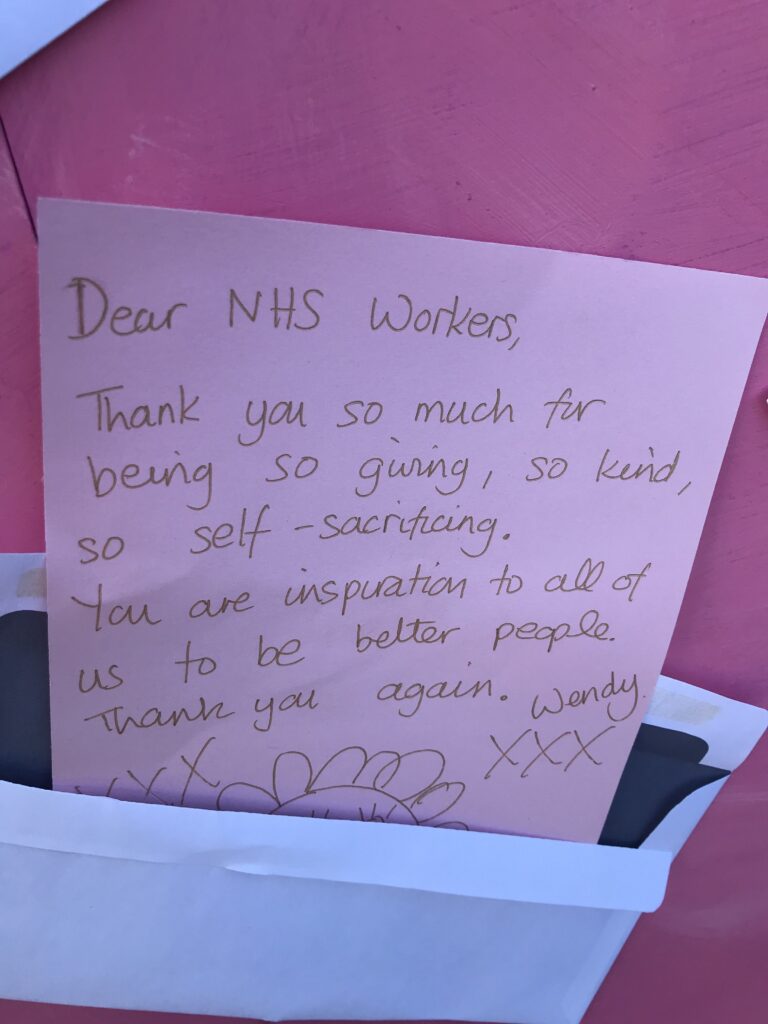 Dear NHS Workers,
Thank you so much for
being so giving, so kind,
so self-sacrificing.
You are inspiration to all of
us to be better people.
Thank you again. Wendy.
XXX
XXX